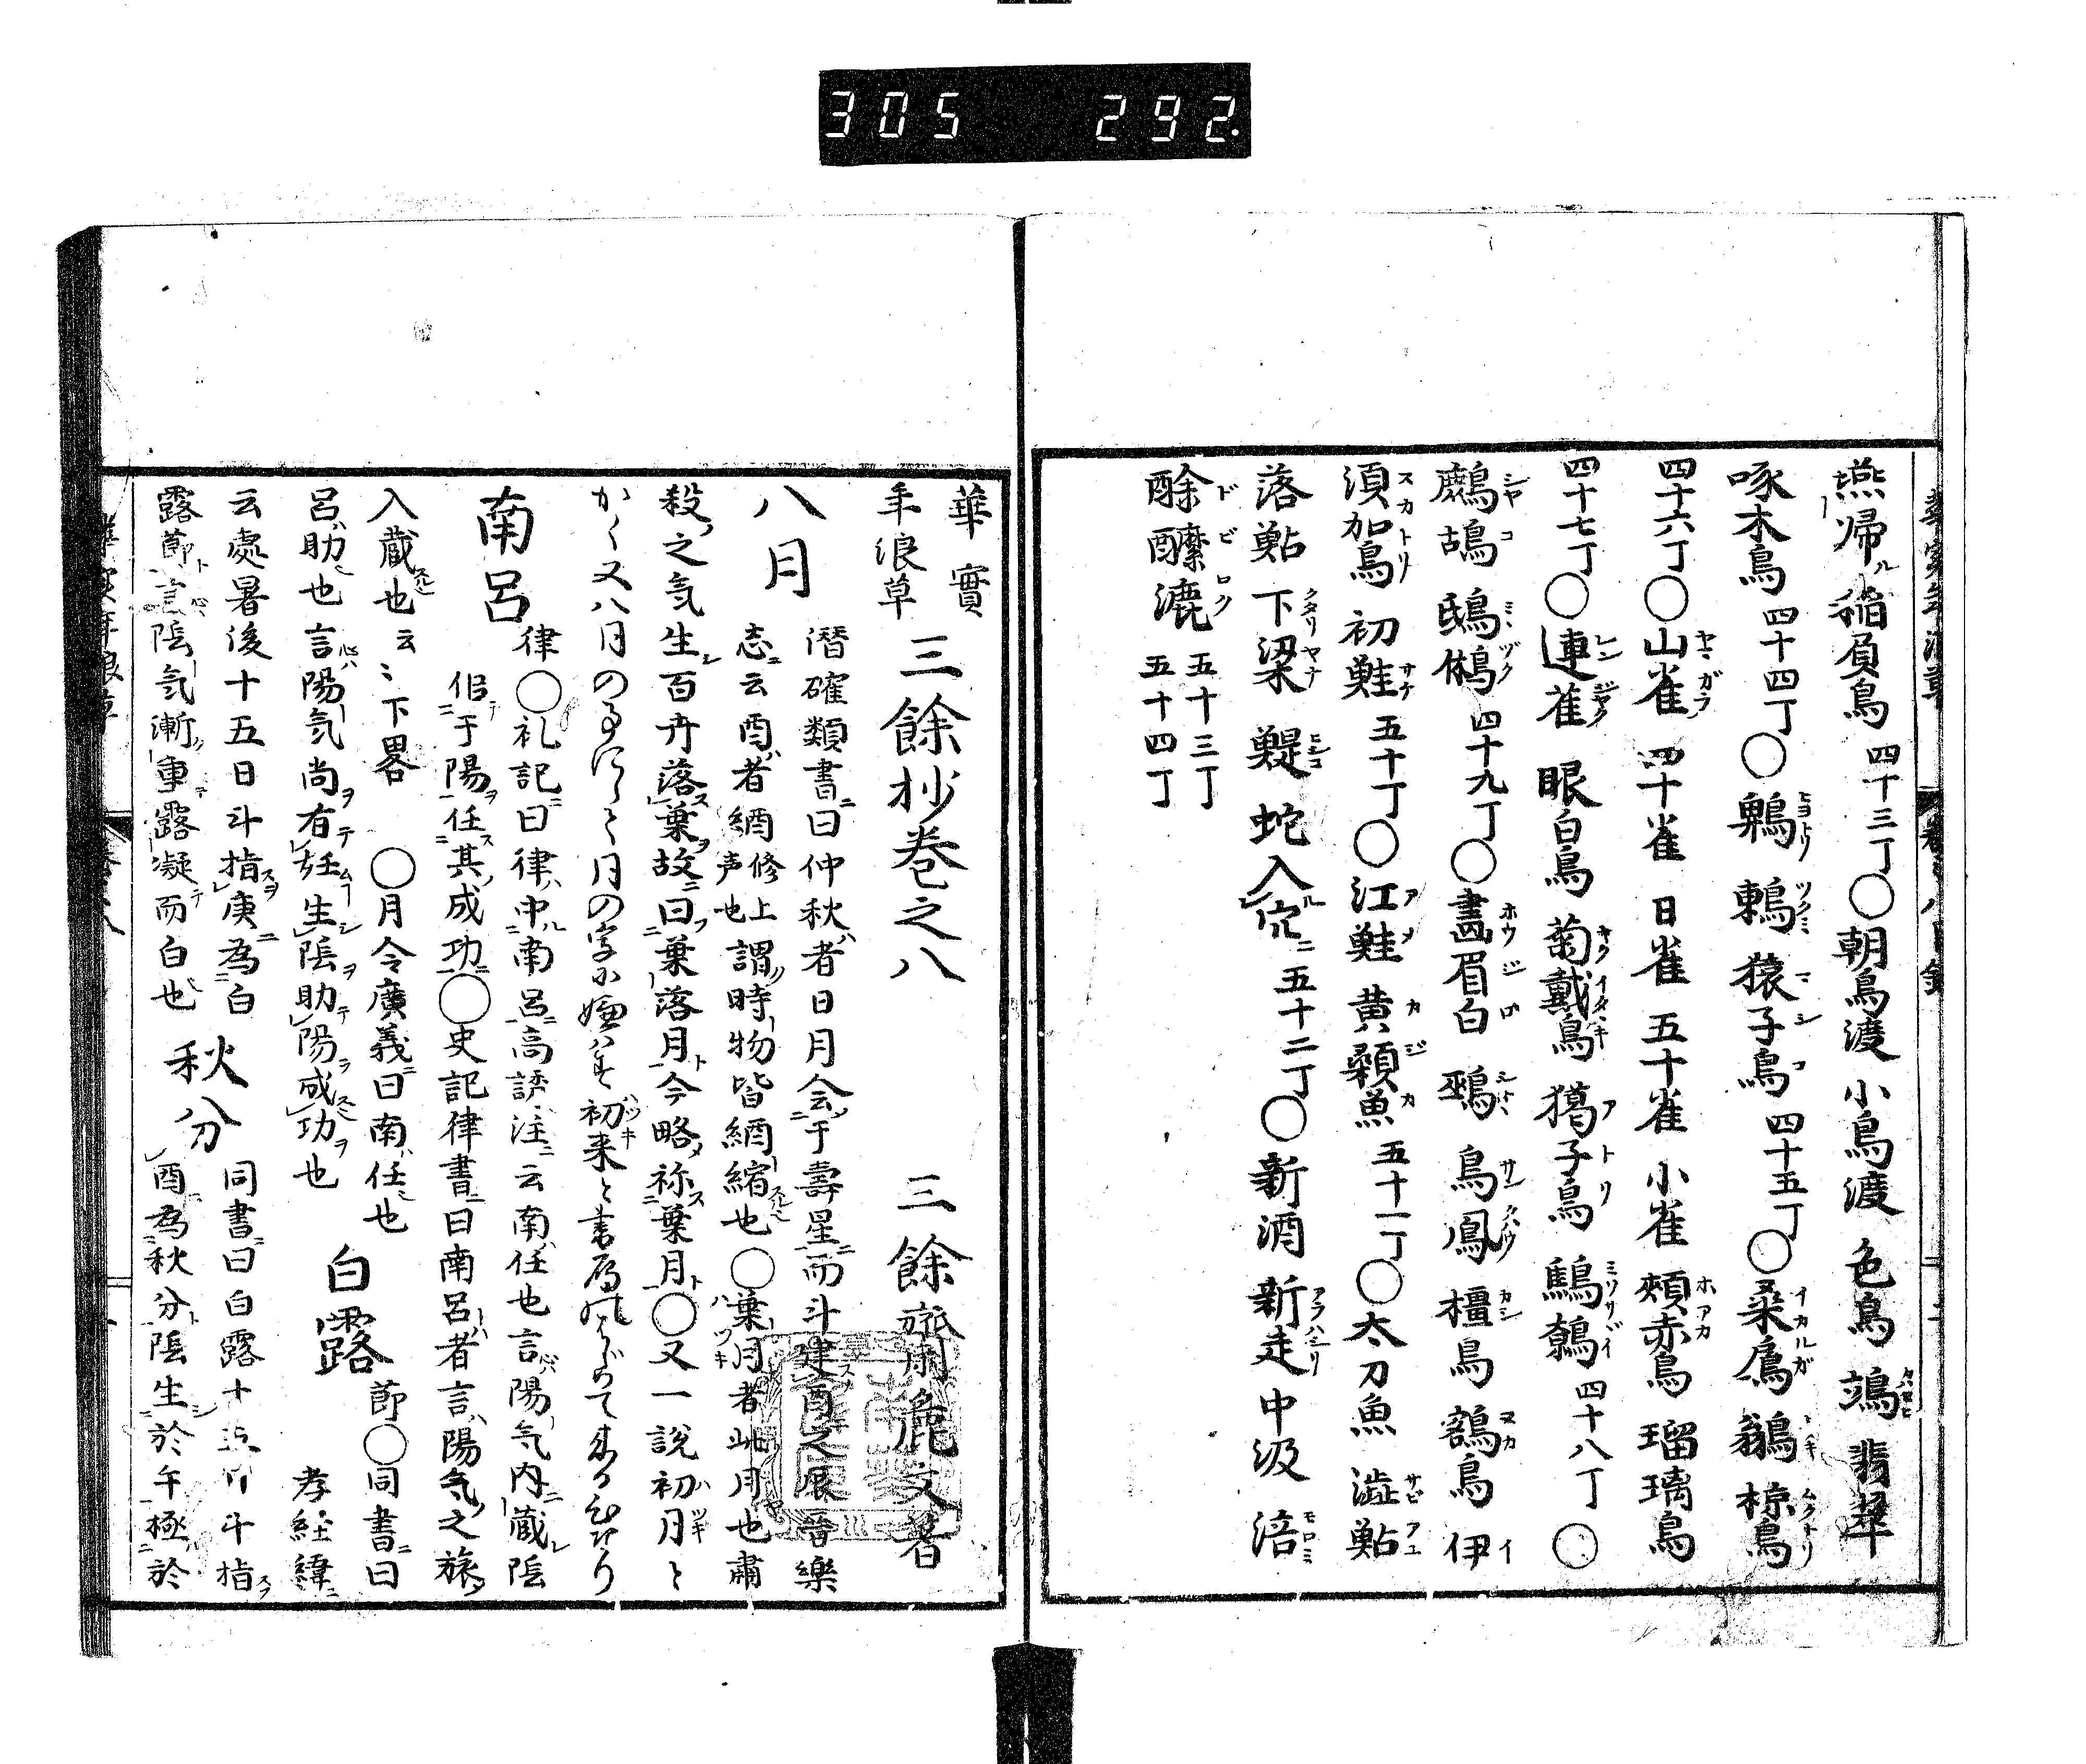 305 292.
燕帰ル 稲負鳥 四十三丁〇朝鳥渡 小鳥渡 色鳥 鴗 翡翠
啄木鳥 四十四丁〇鵯 鶫 猿子鳥 四十五丁〇桑鳲 鶲 椋鳥
四十六丁〇山雀 四十雀 日雀 五十雀 小雀 頬赤鳥 瑠璃鳥
四十七丁〇連雀 眼白鳥 菊戴鳥 獦子鳥 鷦鷯 四十八丁〇
鷓鴣 鴟鵂 四十九丁〇畫眉白 鵐 鳥鳳 橿鳥 鶷鳥 伊
須加鳥 初鮭 五十丁〇江鮭 黄顙魚 五十一丁〇太刀魚 澁鮎
落鮎 下梁 鯷 蛇入穴ニ 五十二丁〇新酒 新走 中汲 涪
醂醿漉 五十三丁 五十四丁
華實年浪草 三餘抄巻之八 三餘齋麁文著
八月 潛確類書ニ曰仲秋者日月会于壽星而斗建酉之辰晉樂
志云酉者緧修上声也謂時物皆緧縮也〇葉月者此月也肅
殺之気生百卉落葉故曰葉落月今略称葉月〇又一説初月と
南呂 律〇礼記曰律中南呂高誘注云南任也言陽気内蔵陰
侶于陽任其成功〇史記律書曰南呂者言陽気之旅
入蔵也云〻下畧 〇月令廣義曰南任也
呂助也言陽気尚有任生陰助陽成功也 白露 節〇同書曰 孝経緯
云處暑後十五日斗指庚為白
露節言陰気漸重露凝而白也 秋分 同書曰白露十五日斗指
酉為秋分陰生於午極於